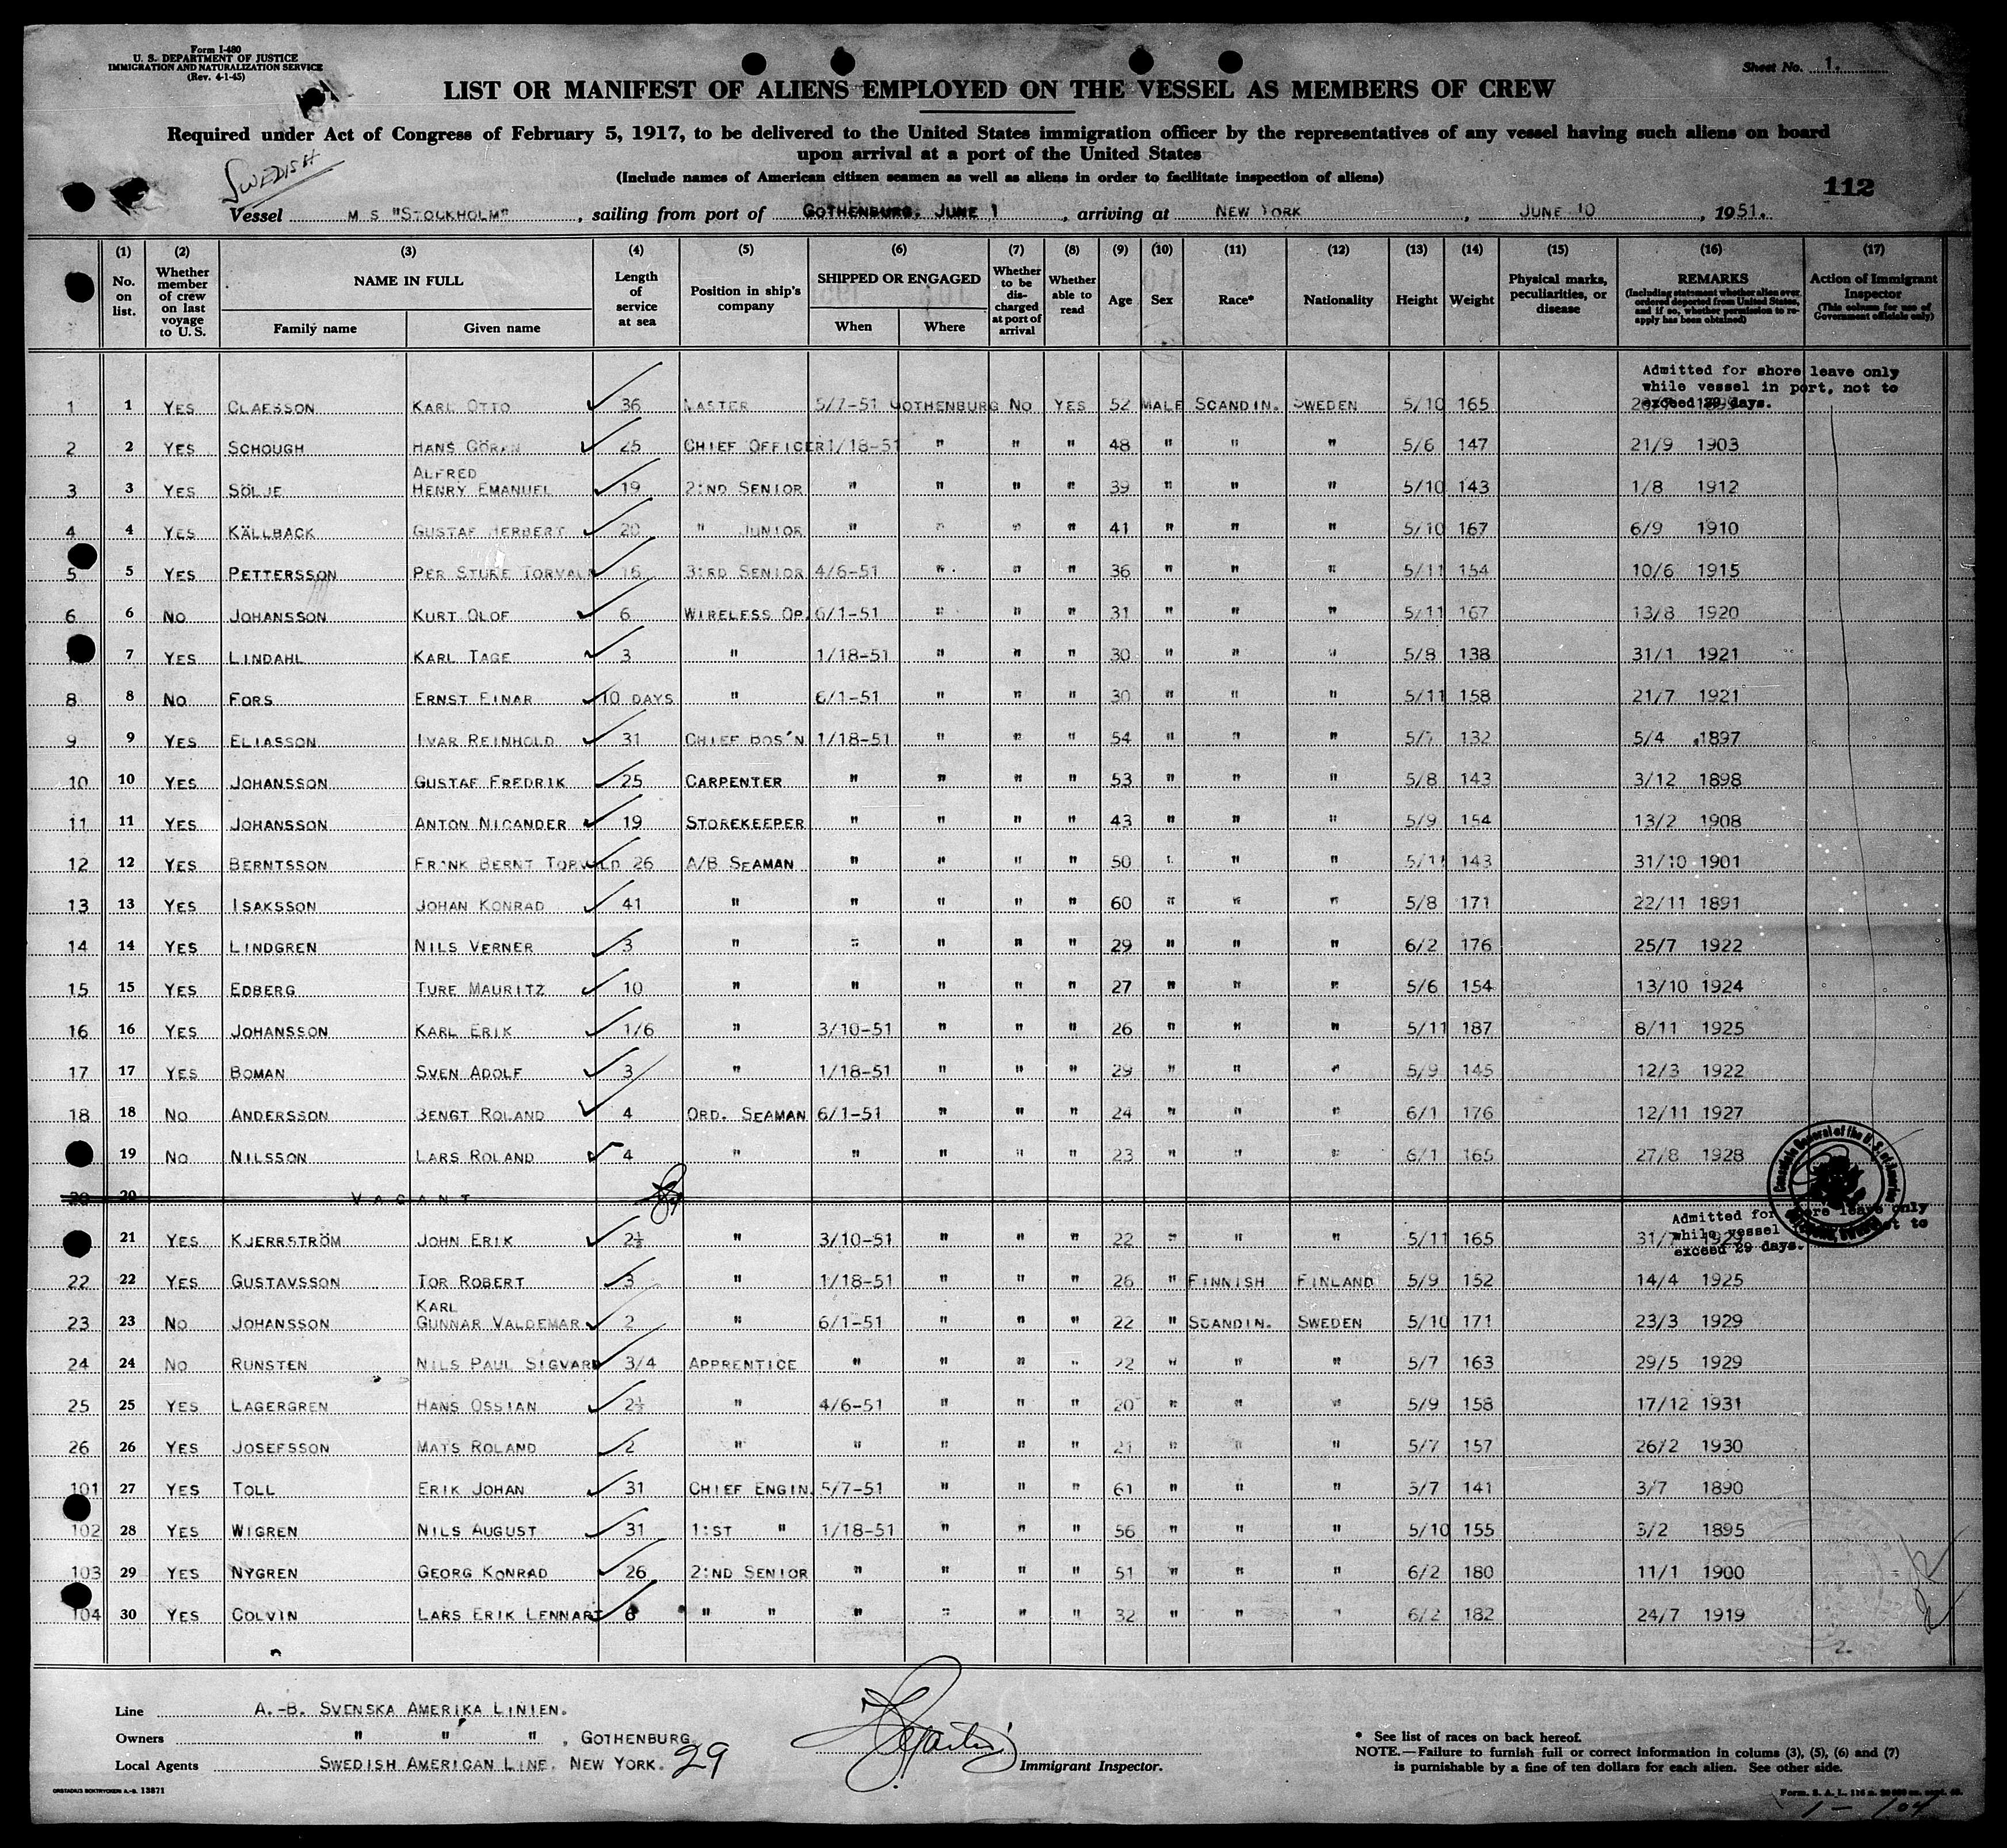 Form I-480
U. S. DEPARTMENT OF JUSTICE
IMMIGRATION AND NATURALIZATION SERVICE
(Rev. 4-1-45)
Sheet No. 1.
LIST OR MANIFEST OF ALIENS EMPLOYED ON THE VESSEL AS MEMBERS OF CREW
Required under Act of Congress of February 5, 1917, to be delivered to the United States immigration officer by the representatives of any vessel having such aliens on board
upon arrival at a port of the United States
SWEDISH
(Include names of American citizen seamen as well as aliens in order to facilitate inspection of aliens)
112
Vessel M S "STOCKHOLM", sailing from port of GOTHENBURG, JUNE 1, arriving at NEW YORK, JUNE 10, 1951.
(1) (2) (3) (4) (5) (6) (7) (8) (9) (10) (11) (12) (13) (14) (15) (16) (17)
No. on list. Whether member of crew on last voyage to U. S. NAME IN FULL Family name Given name Length of service at sea Position in ship's company SHIPPED OR ENGAGED When Where Whether to be discharged at port of arrival Whether able to read Age Sex Race* Nationality Height Weight Physical marks, peculiarities, or disease REMARKS (Including statement whether alien ever ordered deported from United States, and if so, whether permission to re-apply has been obtained) Action of Immigrant Inspector (This column for use of Government officials only)
Admitted for shore leave only
while vessel in port, not to
exceed 29 days.
1 1 YES CLAESSON KARL OTTO 36 MASTER 5/7-51 GOTHENBURG NO YES 52 MALE SCANDIN. SWEDEN 5/10 165
2 2 YES SCHOUGH HANS GÖRAN 25 CHIEF OFFICER 1/18-51 " " " 48 " " " 5/6 147 21/9 1903
ALFRED
3 3 YES SÖLJE HENRY EMANUEL 19 2:ND SENIOR " " " " 39 " " " 5/10 143 1/8 1912
4 4 YES KÄLLBACK GUSTAF HERBERT 20 " JUNIOR " " " " 41 " " " 5/10 167 6/9 1910
5 5 YES PETTERSSON PER STURE TORVALD 16 3:RD SENIOR 4/6-51 " " " 36 " " " 5/11 154 10/6 1915
6 6 NO JOHANSSON KURT OLOF 6 WIRELESS OP. 6/1-51 " " " 31 " " " 5/11 167 13/8 1920
7 YES LINDAHL KARL TAGE 3 " 1/18-51 " " " 30 " " " 5/8 138 31/1 1921
8 8 NO FORS ERNST EINAR 10 DAYS " 6/1-51 " " " 30 " " " 5/11 158 21/7 1921
9 9 YES ELIASSON IVAR REINHOLD 31 CHIEF BOS'N 1/18-51 " " " 54 " " " 5/7 132 5/4 1897
10 10 YES JOHANSSON GUSTAF FREDRIK 25 CARPENTER " " " " 53 " " " 5/8 143 3/12 1898
11 11 YES JOHANSSON ANTON NICANDER 19 STOREKEEPER " " " " 43 " " " 5/9 154 13/2 1908
12 12 YES BERNTSSON FRANK BERNT TORVALD 26 A/B SEAMAN " " " " 50 " " " 5/11 143 31/10 1901
13 13 YES ISAKSSON JOHAN KONRAD 41 " " " " " 60 " " " 5/8 171 22/11 1891
14 14 YES LINDGREN NILS VERNER 3 " " " " " 29 " " " 6/2 176 25/7 1922
15 15 YES EDBERG TURE MAURITZ 10 " " " " " 27 " " " 5/6 154 13/10 1924
16 16 YES JOHANSSON KARL ERIK 1/6 " 3/10-51 " " " 26 " " " 5/11 187 8/11 1925
17 17 YES BOMAN SVEN ADOLF 3 " 1/18-51 " " " 29 " " " 5/9 145 12/3 1922
18 18 NO ANDERSSON BENGT ROLAND 4 ORD. SEAMAN 6/1-51 " " " 24 " " " 6/1 176 12/11 1927
19 NO NILSSON LARS ROLAND 4 " " " " " 23 " " " 6/1 165 27/8 1928
20 20 VACANT
Admitted for shore leave only
while vessel not to
exceed 29 days.
21 YES KJERRSTRÖM JOHN ERIK 2½ " 3/10-51 " " " 22 " " " 5/11 165 31/7 1929
22 22 YES GUSTAVSSON TOR ROBERT 3 " 1/18-51 " " " 26 " FINNISH FINLAND 5/9 152 14/4 1925
KARL
23 23 NO JOHANSSON GUNNAR VALDEMAR 2 " 6/1-51 " " " 22 " SCANDIN. SWEDEN 5/10 171 23/3 1929
24 24 NO RUNSTEN NILS PAUL SIGVARD 3/4 APPRENTICE " " " " 22 " " " 5/7 163 29/5 1929
25 25 YES LAGERGREN HANS OSSIAN 2½ " 4/6-51 " " " 20 " " " 5/9 158 17/12 1931
26 26 YES JOSEFSSON MATS ROLAND 2 " " " " " 21 " " " 5/7 157 26/2 1930
101 27 YES TOLL ERIK JOHAN 31 CHIEF ENGIN. 5/7-51 " " " 61 " " " 5/7 141 3/7 1890
102 28 YES WIGREN NILS AUGUST 31 1:ST " 1/18-51 " " " 56 " " " 5/10 155 3/2 1895
103 29 YES NYGREN GEORG KONRAD 26 2:ND SENIOR " " " " 51 " " " 6/2 180 11/1 1900
104 30 YES COLVIN LARS ERIK LENNART 6 " " " " " " 32 " " " 6/2 182 24/7 1919
2.
Line A.-B. SVENSKA AMERIKA LINIEN.
Owners " " " , GOTHENBURG.
Local Agents SWEDISH AMERICAN LINE, NEW YORK. 29
Immigrant Inspector.
* See list of races on back hereof.
NOTE.—Failure to furnish full or correct information in colums (3), (5), (6) and (7)
is punishable by a fine of ten dollars for each alien. See other side.
ORSTADIUS BOKTRYCKERI A.-B. 13871
1 - 104